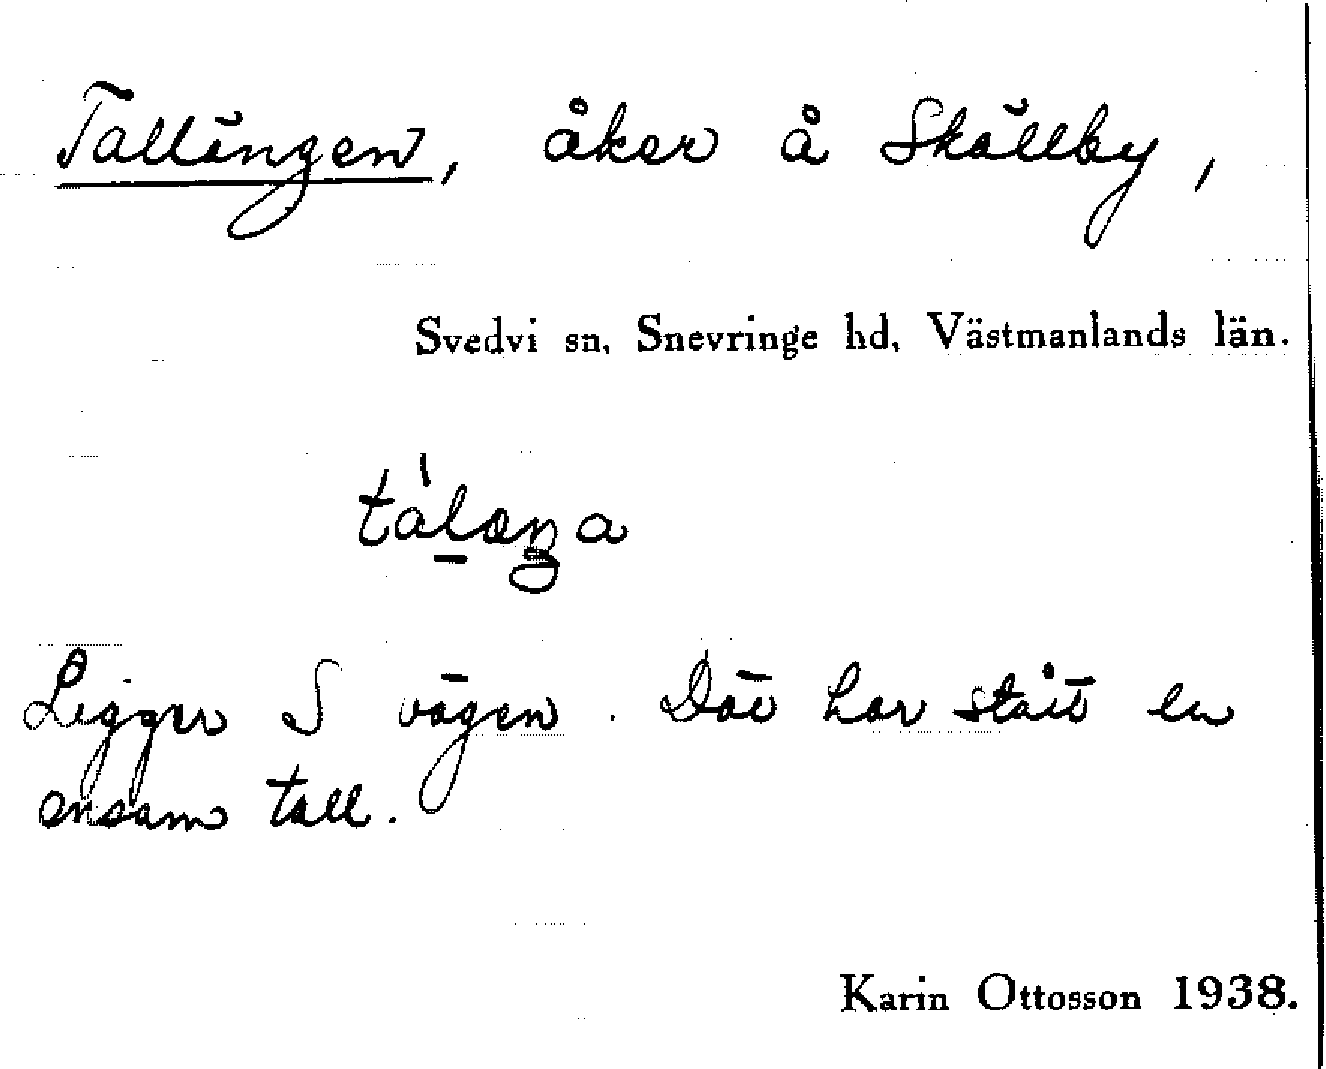 Tallängen, åker å Skällby,
Svedvi sn, Snevringe hd, Västmanlands län.
Ligger S vägen. Där har stått en
ensam tall.
Karin Ottosson 1938.